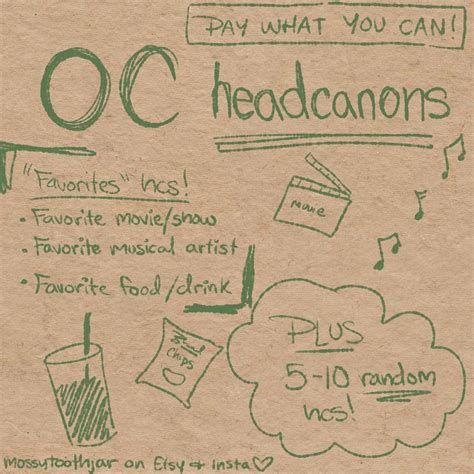 PAY WHAT YOU CAN!
OC headcanons
"Favorites" hcs!
• Favorite movie/show
• Favorite musical artist
• Favorite food/drink
movie
Chips
PLUS
5-10 random
hcs!
mossytoothjar on Etsy & insta♡